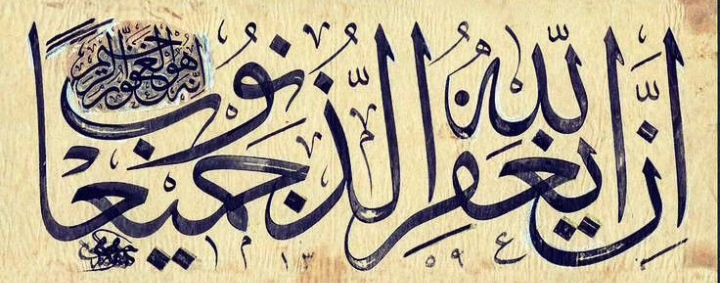 اِنَّ اللّٰهَ يَغْفِرُ الذُّنُوبَ جَمِيعًا
انه هو الغفور الرحيم
١٣٥٩